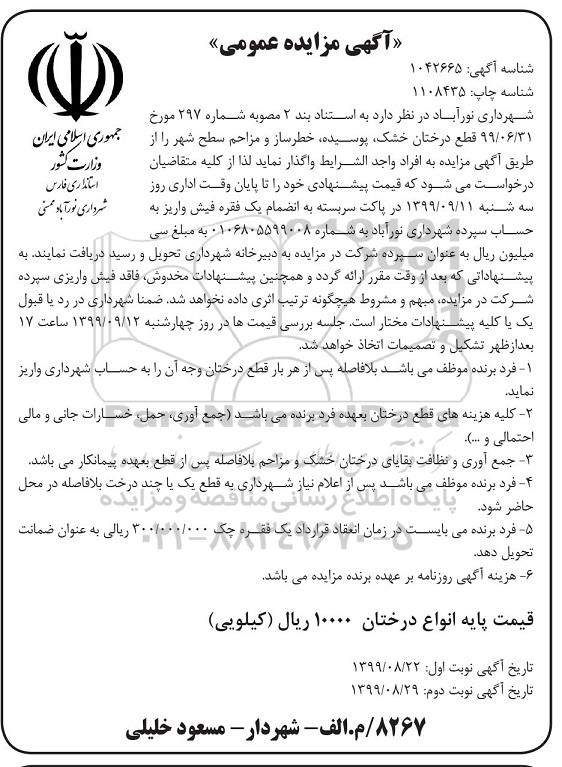 «آگهی مزایده عمومی»
جمهوری اسلامی ایران
وزارت کشور
استانداری فارس
شهرداری نورآباد ممسنی
شناسه آگهی: ۱۰۴۲۶۶۵
شناسه چاپ: ۱۱۰۸۴۳۵
شهرداری نورآباد در نظر دارد به استناد بند ۲ مصوبه شماره ۲۹۷ مورخ
۹۹/۰۶/۳۱ قطع درختان خشک، پوسیده، خطرساز و مزاحم سطح شهر را از
طریق آگهی مزایده به افراد واجد الشرایط واگذار نماید لذا از کلیه متقاضیان
درخواست می شود که قیمت پیشنهادی خود را تا پایان وقت اداری روز
سه شنبه ۱۳۹۹/۰۹/۱۱ در پاکت سربسته به انضمام یک فقره فیش واریز به
حساب سپرده شهرداری نورآباد به شماره ۰۱۰۶۸۰۵۵۹۹۰۰۸ به مبلغ سی
میلیون ریال به عنوان سپرده شرکت در مزایده به دبیرخانه شهرداری تحویل و رسید دریافت نمایند. به
پیشنهاداتی که بعد از وقت مقرر ارائه گردد و همچنین پیشنهادات مخدوش، فاقد فیش واریزی سپرده
شرکت در مزایده، مبهم و مشروط هیچگونه ترتیب اثری داده نخواهد شد. ضمنا شهرداری در رد یا قبول
یک یا کلیه پیشنهادات مختار است. جلسه بررسی قیمت ها در روز چهارشنبه ۱۳۹۹/۰۹/۱۲ ساعت ۱۷
بعدازظهر تشکیل و تصمیمات اتخاذ خواهد شد.
۱- فرد برنده موظف می باشد بلافاصله پس از هر بار قطع درختان وجه آن را به حساب شهرداری واریز
نماید.
۲- کلیه هزینه های قطع درختان بعهده فرد برنده می باشد (جمع آوری، حمل، خسارات جانی و مالی
احتمالی و ...).
۳- جمع آوری و نظافت بقایای درختان خشک و مزاحم بلافاصله پس از قطع بعهده پیمانکار می باشد.
۴- فرد برنده موظف می باشد پس از اعلام نیاز شهرداری به قطع یک یا چند درخت بلافاصله در محل
حاضر شود.
۵- فرد برنده می بایست در زمان انعقاد قرارداد یک فقره چک ۳۰۰/۰۰۰/۰۰۰ ریالی به عنوان ضمانت
تحویل دهد.
۶- هزینه آگهی روزنامه بر عهده برنده مزایده می باشد.
قیمت پایه انواع درختان ۱۰۰۰۰ ریال (کیلویی)
تاریخ آگهی نوبت اول: ۱۳۹۹/۰۸/۲۲
تاریخ آگهی نوبت دوم: ۱۳۹۹/۰۸/۲۹
۸۲۶۷/م.الف- شهردار- مسعود خلیلی
ParsNamadData
پایگاه اطلاع رسانی مناقصه و مزایده
۰۲۱-۸۸۳۴۹۶۷۰-۵